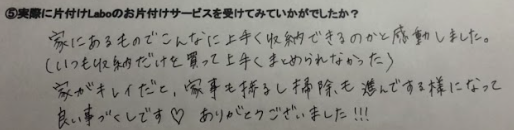 ⑤実際に片付けLaboのお片付けサービスを受けてみていかがでしたか？
家にあるものでこんなに上手く収納できるのかと感動しました。
(いつも収納だけを買って上手くまとめられなかった)
家がキレイだと、家事も捗るし掃除も進んでする様になって
良い事づくしです♡ ありがとうございました!!!